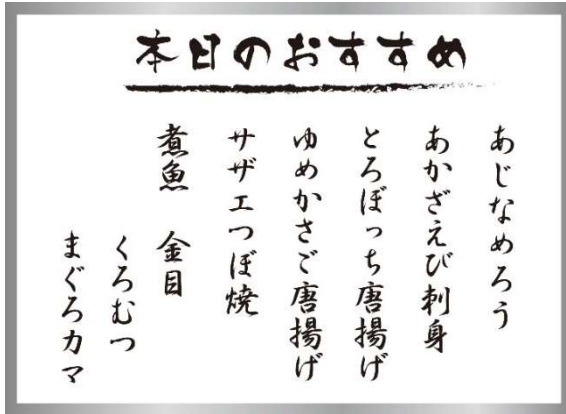 本日のおすすめ
あじなめろう
あかざえび刺身
とろぼっち唐揚げ
ゆめかさご唐揚げ
サザエつぼ焼
煮魚　金目
くろむつ
まぐろカマ